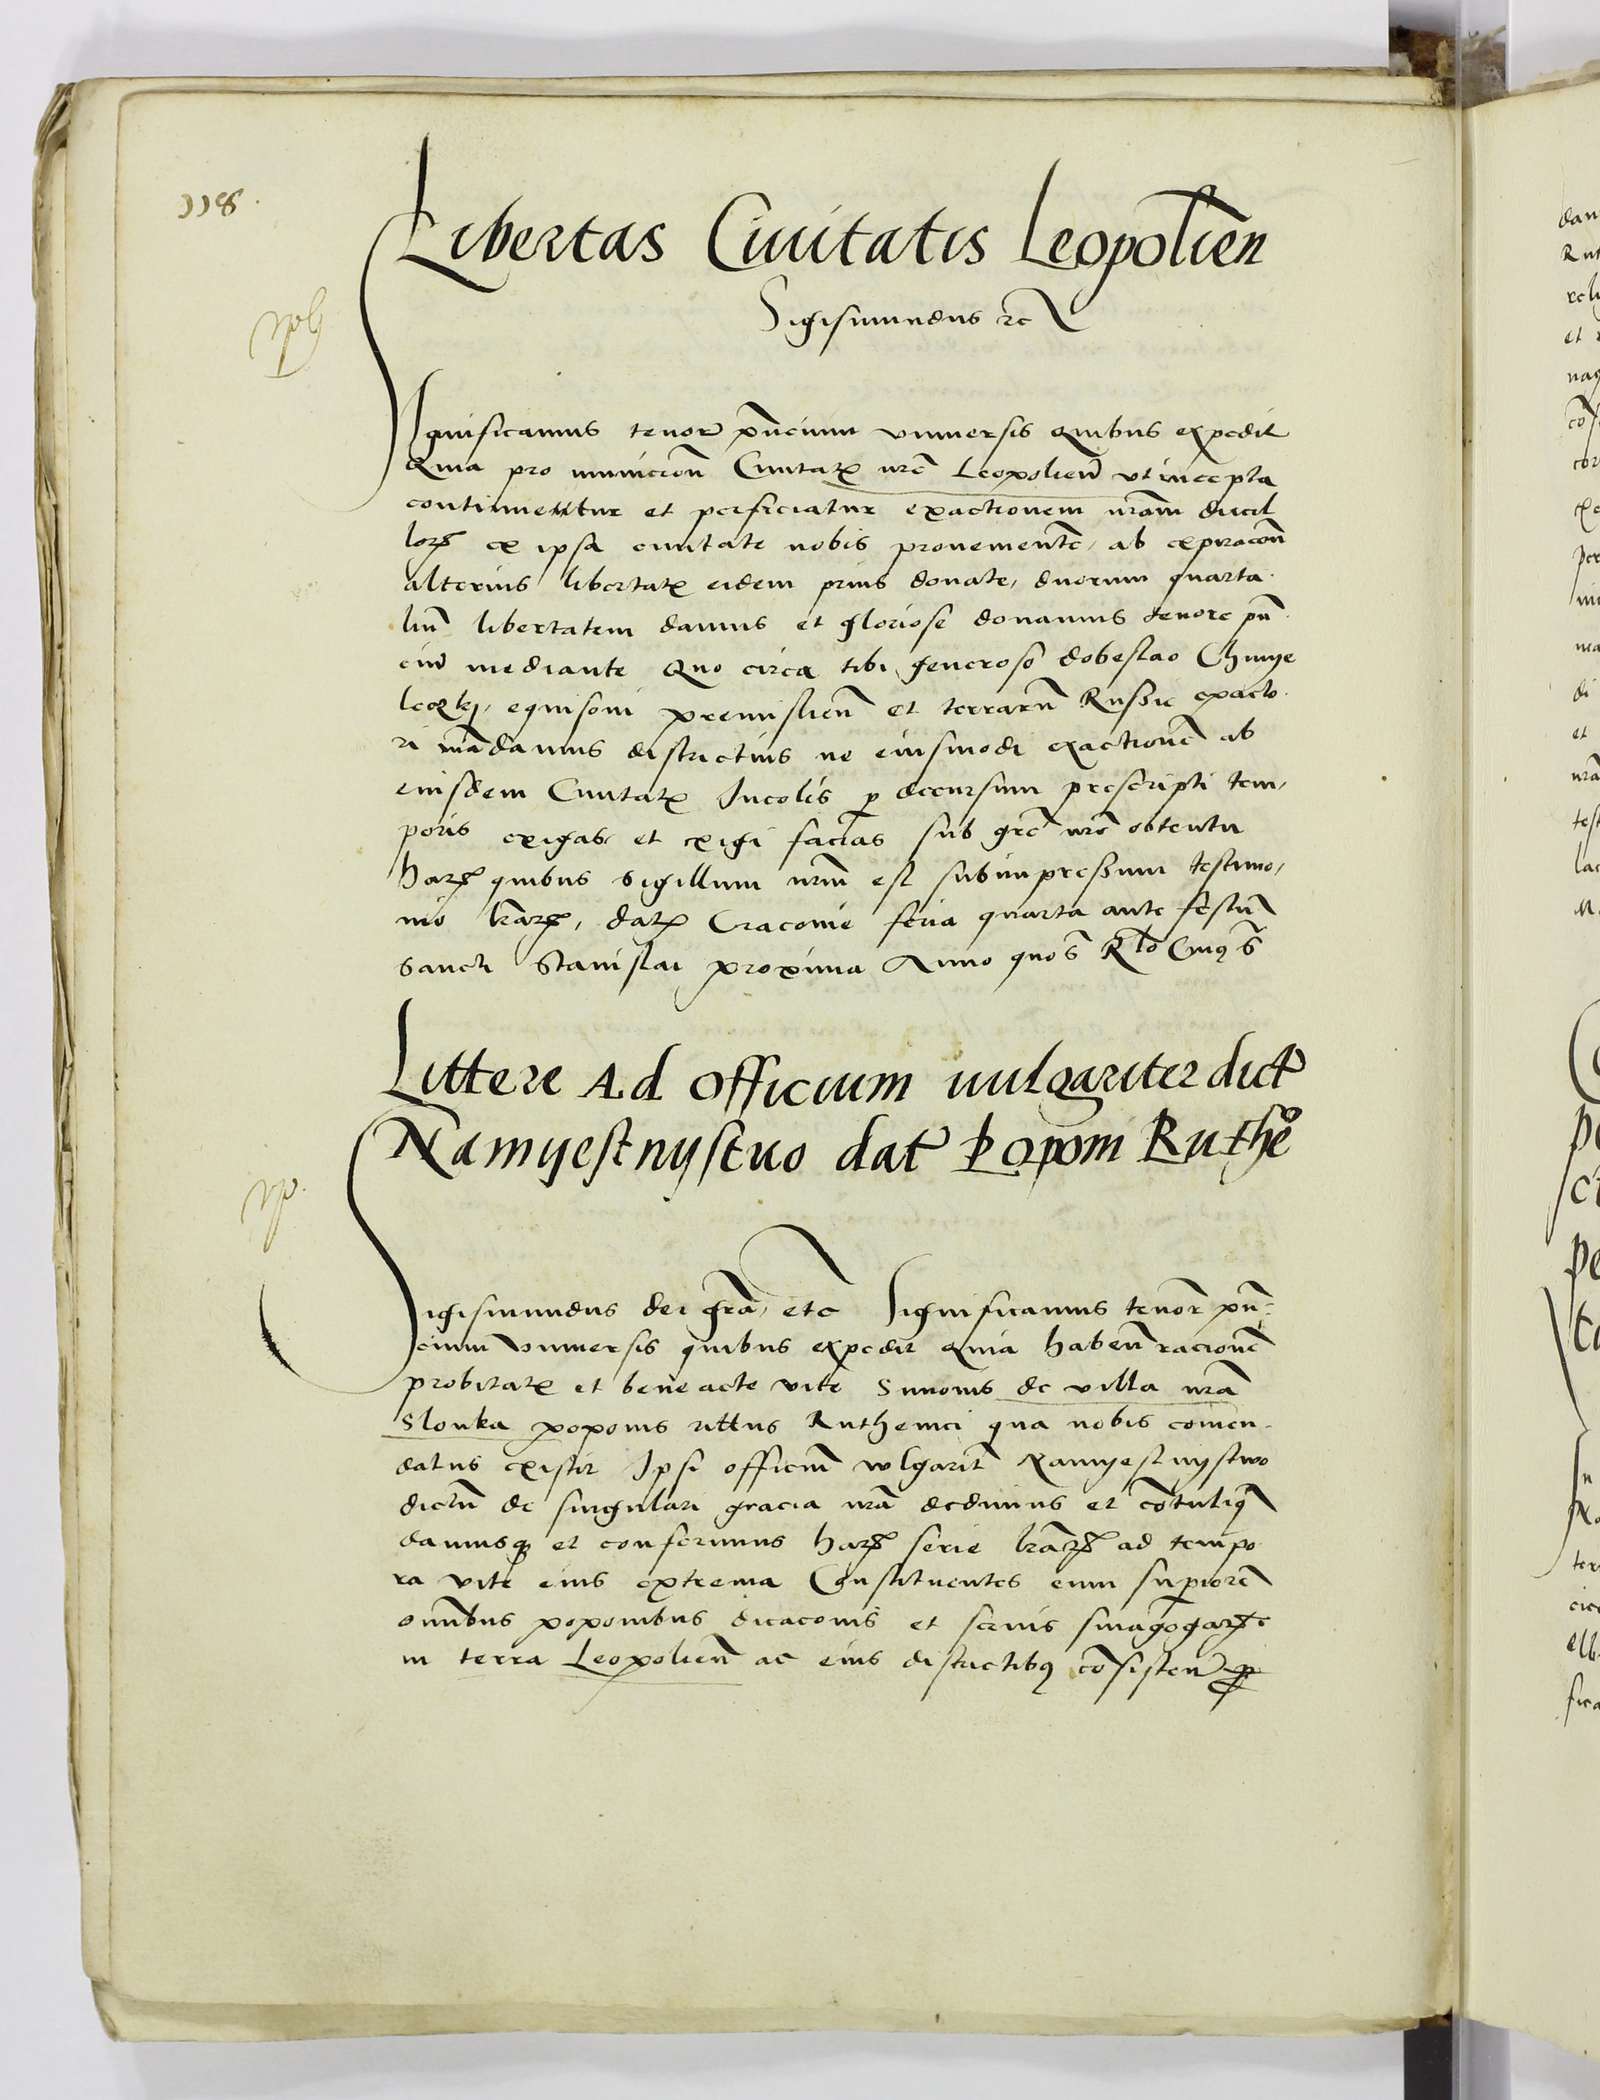 118.
Libertas Ciuitatis Leopolien
Sigismundus etc
Significamus tenore pñcium vniuersis quibus expedit
quia pro municion Ciuitatis nre Leopolien vt incepta
continuentur et perficiatur exactionem nram ducil
lorum ex ipsa ciuitate nobis prouenientem, ab expiracion
alterius libertatis eidem prius donate, duorum quarta
liu libertatem damus et gloriose donamus tenore pñ
ciu mediante Quo circa tibi generoso dobeslao
equisoni premislien et terraru Russie exacto
ri mandamus districtius ne eiusmodi exactione ab
eiusdem Ciuitatis Incolis per decursum prescripti tem
poris exigas et exigi facias sub gre nre obtentu
harum quibus Sigillum nrm est subimpressum testimo,
nio lrarum, datum Cracouie feria quarta ante festu
sancti Stanislai proxima Anno quo s
Littere Ad officium uulgariter dict
Namyestnystuo dat Poponi Ruthe
Sigismundus dei gra, etc Significamus tenor pñ
cium vniuersis quibus expedit quia haben racione
probitatis et bene acte vite Simonis de villa nra
Slonka poponis rittus Ruthenici qua nobis comen
datus existit Ipsi officiu wlgarit Namyestnystwo
dictu de singulari gracia nra dedimus et contulim
damusque et conferimus harum serie lrarum ad tempo
ra vite eius extrema Constituentes eum superiore
omnibus poponibus diaconis et scruis sinagogarum
in terra Leopolien ac eius districtibus consisten